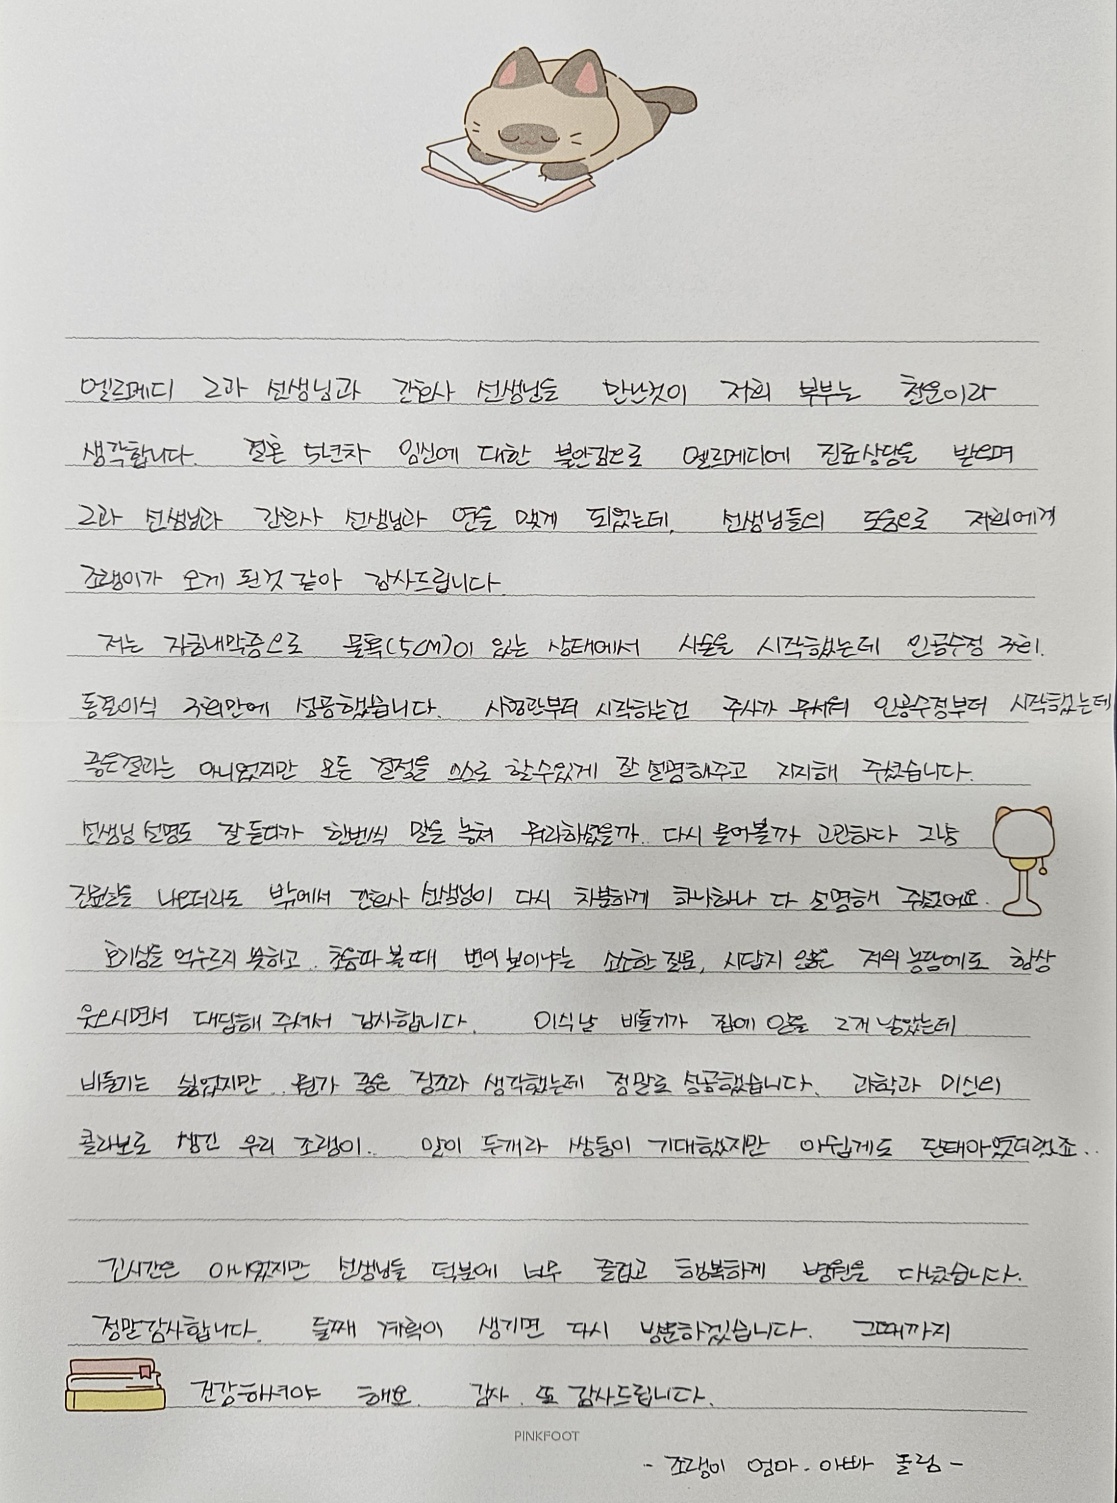 엘르메디 2과 선생님과 간호사 선생님들 만난것이 저희 부부는 천운이라
생각합니다. 결혼 5년차 임신에 대한 불안감으로 엘르메디에 진료상담을 받으며
2과 선생님과 간호사 선생님과 연을 맺게 되었는데, 선생님들의 도움으로 저희에게
조랭이가 오게 된것 같아 감사드립니다.
저는 자궁내막증으로 물혹(5CM)이 있는 상태에서 시술을 시작했는데 인공수정 3회.
동결이식 3회만에 성공했습니다. 시험관부터 시작하는건 주사가 무서워 인공수정부터 시작했는데
좋은결과는 아니었지만 모든 결정을 스스로 할수있게 잘 설명해주고 지지해 주셨습니다.
선생님 설명도 잘 듣다가 한번씩 말을 놓쳐 뭐라하셨을까.. 다시 물어볼까 고민하다 그냥
진료실을 나오더라도 밖에서 간호사 선생님이 다시 차분하게 하나하나 다 설명해 주셨어요.
호기심을 억누르지 못하고.. 초음파 볼때 번의 보이냐는 소소한 질문, 시답지 않은 저의 농담에도 항상
웃으시면서 대답해 주셔서 감사합니다. 이식날 비둘기가 집에 알을 2개 낳았는데
비둘기는 싫었지만.. 뭔가 좋은 징조라 생각했는데 정말로 성공했습니다. 과학과 미신의
콜라보로 생긴 우리 조랭이.. 알이 두개라 쌍둥이 기대했지만 아쉽게도 단태아였더랬죠..
긴시간은 아니었지만 선생님들 덕분에 너무 즐겁고 행복하게 병원을 다녔습니다.
정말감사합니다. 둘째 계획이 생기면 다시 방문하겠습니다. 그때까지
건강하셔야 해요. 감사. 또 감사드립니다.
PINKFOOT
- 조랭이 엄마. 아빠 올림 -